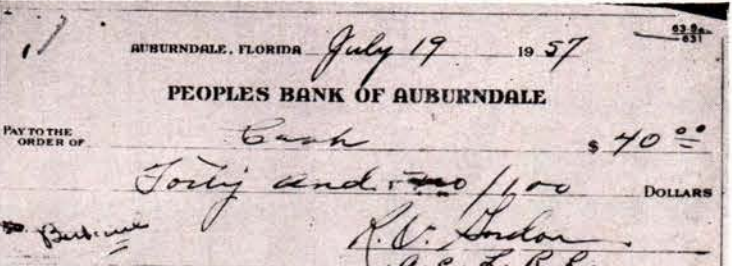 AUBURNDALE, FLORIDA July 19 1957
63-9
631
PEOPLES BANK OF AUBURNDALE
PAY TO THE
ORDER OF Cash $ 40 00
Forty and no/100 DOLLARS
R. V. Gordon
A. C. L. R. R.